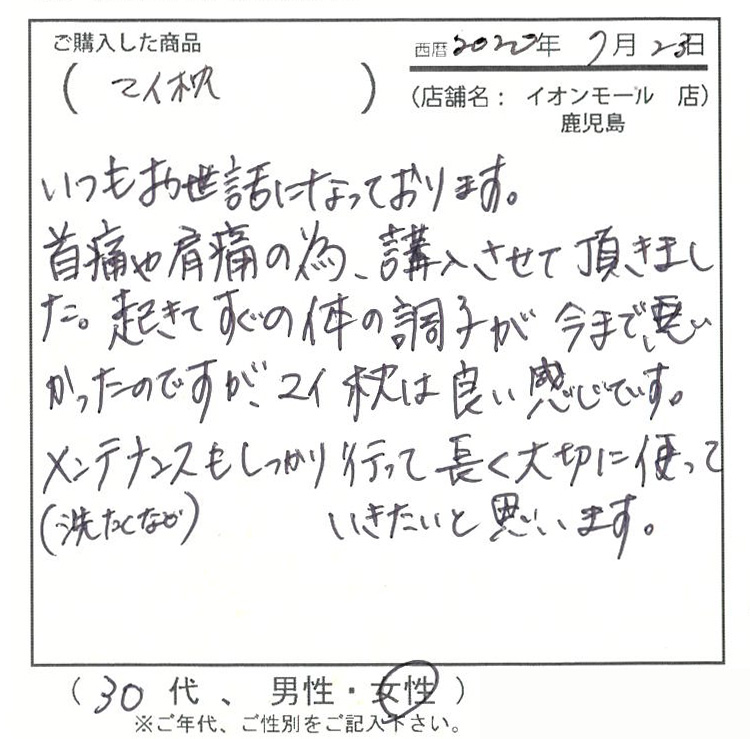 ご購入した商品
西暦2020年 7月 23日
( マイ枕 )
(店舗名： イオンモール 店)
鹿児島
いつもお世話になっております。
首痛や肩痛の為、講入させて頂きまし
た。起きてすぐの体の調子が今まで悪い
かったのですが、マイ枕は良い感じです。
メンテナンスもしっかり行って長く大切に使って
(洗たくなど) いきたいと思います。
( 30 代 、 男性・女性 )
※ご年代、ご性別をご記入下さい。